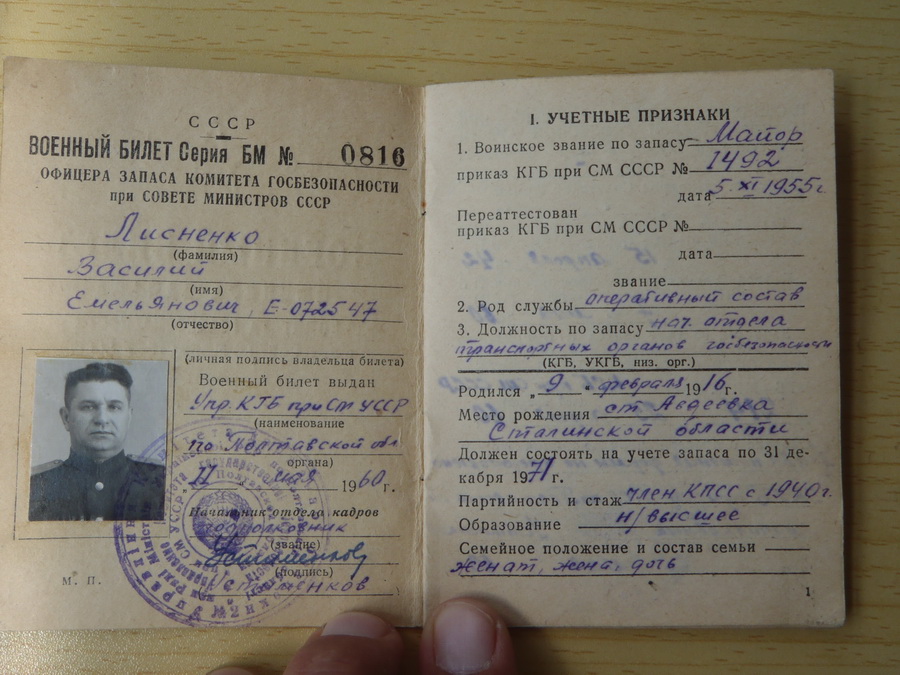 СССР
ВОЕННЫЙ БИЛЕТ Серия БМ № 0816
ОФИЦЕРА ЗАПАСА КОМИТЕТА ГОСБЕЗОПАСНОСТИ
при СОВЕТЕ МИНИСТРОВ СССР
Лисненко
(фамилия)
Василий
(имя)
Емельянович, Е-072547
(отчество)
(личная подпись владельца билета)
Военный билет выдан
Упр. КГБ при СМ УССР
(наименование
по Полтавской обл
органа)
мая 1960 г.
Начальник отдела кадров
подполковник
(звание)
(подпись)
Устименков
М. П.
I. УЧЕТНЫЕ ПРИЗНАКИ
1. Воинское звание по запасу Майор
приказ КГБ при СМ СССР № 1492
дата 5.XI 1955г.
Переаттестован
приказ КГБ при СМ СССР №
дата
звание
2. Род службы оперативный состав
3. Должность по запасу нач. отдела
транспортных органов госбезопасности
(КГБ, УКГБ, низ. орг.)
Родился „9 февраля 1916 г.
Место рождения ст. Авдеевка
Сталинской области
Должен состоять на учете запаса по 31 де-
кабря 1971 г.
Партийность и стаж член КПСС с 1940г.
Образование н/высшее
Семейное положение и состав семьи
женат, жена, дочь
1